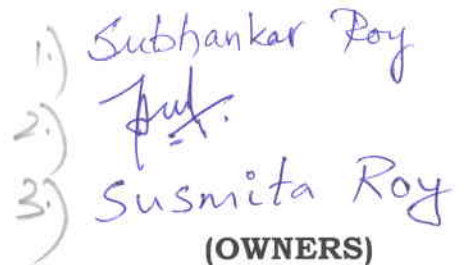 1.) Subhankar Roy
2.)
3.) Susmita Roy
(OWNERS)